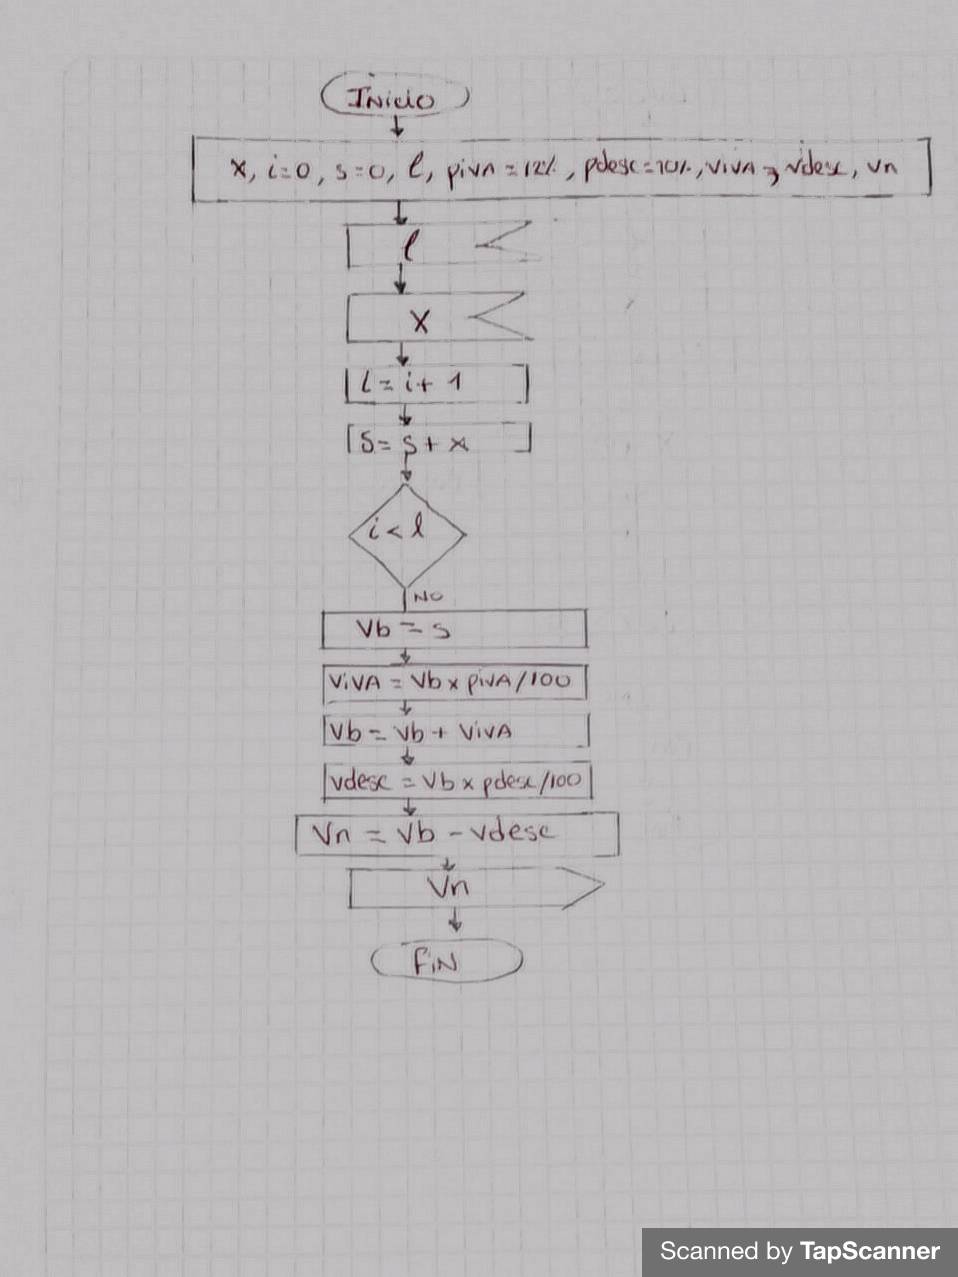 Inicio
x, i=0, s=0, l, piva=12%, pdesc=10%, viva, vdesc, vn
l
x
i = i + 1
s = s + x
i < l
NO
Vb = s
ViVA = Vb x piVA/100
Vb = Vb + ViVA
vdesc = Vb x pdesc/100
Vn = Vb - Vdesc
Vn
FiN
Scanned by TapScanner